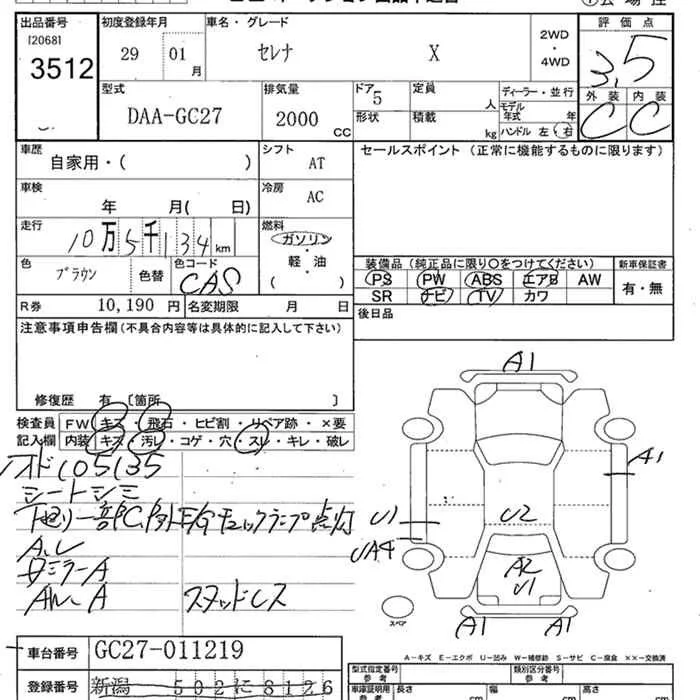 出品番号
[2068]
3512
初度登録年月
29 01 月
車名・グレード
セレナ X
2WD
・
4WD
評価点
3.5
外装 内装
C C
型式
DAA-GC27
排気量
2000 CC
ドア 5
形状
定員 人
積載 kg
ディーラー・並行
モデル年式 年
ハンドル 左・右
車歴
自家用・( )
シフト AT
セールスポイント (正常に機能するものに限ります)
車検
年 月( 日)
冷房 AC
走行
10万5千134 km
燃料
ガソリン
・
軽・油
( )
色
ブラウン 色替
色コード
CAS
装備品 (純正品に限り○をつけてください)
PS PW ABS エアB AW
SR ナビ TV カワ
新車保証書
有・無
R券 10,190 円
名変期限 月 日
後日品
注意事項申告欄(不具合内容等は具体的に記入して下さい)
修復歴 有 [箇所 ]
検査員
記入欄
FW キズ・飛石・ヒビ割・リペア跡・×要
内装 キズ・汚レ・コゲ・穴・スレ・キレ・破レ
オド105135
シートシミ
下廻り一部
E/Gチェックランプ点灯
ミラーA
AW A
スタッドレス
A1
A1
U1
U2
UA4
A2
U1
A1
A1
スペア
A-キズ E-エクボ U-凹み W-補修跡 S-サビ C-腐食 ××-交換済
車台番号
GC27-011219
登録番号
新潟 502 に 8126
型式指定番号
参考
類別区分番号
参考
車庫証明用
参考
長さ cm
幅 cm
高さ cm